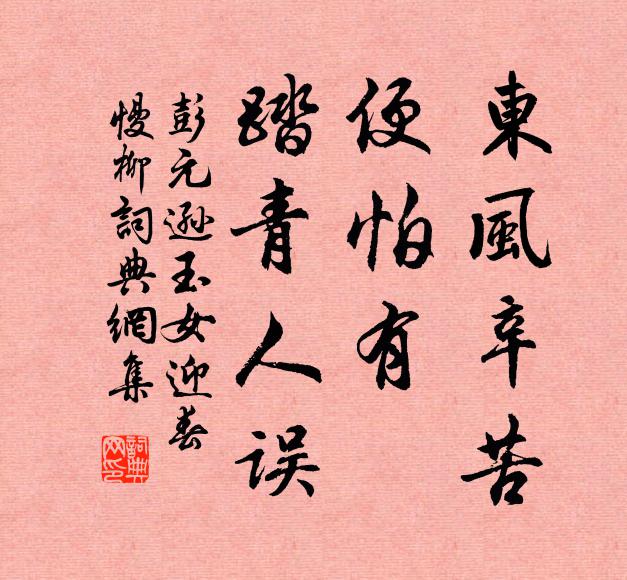 東風辛苦
便怕有
踏青人误
彭元逊玉女迎春
慢柳詞典網集
詞典网印